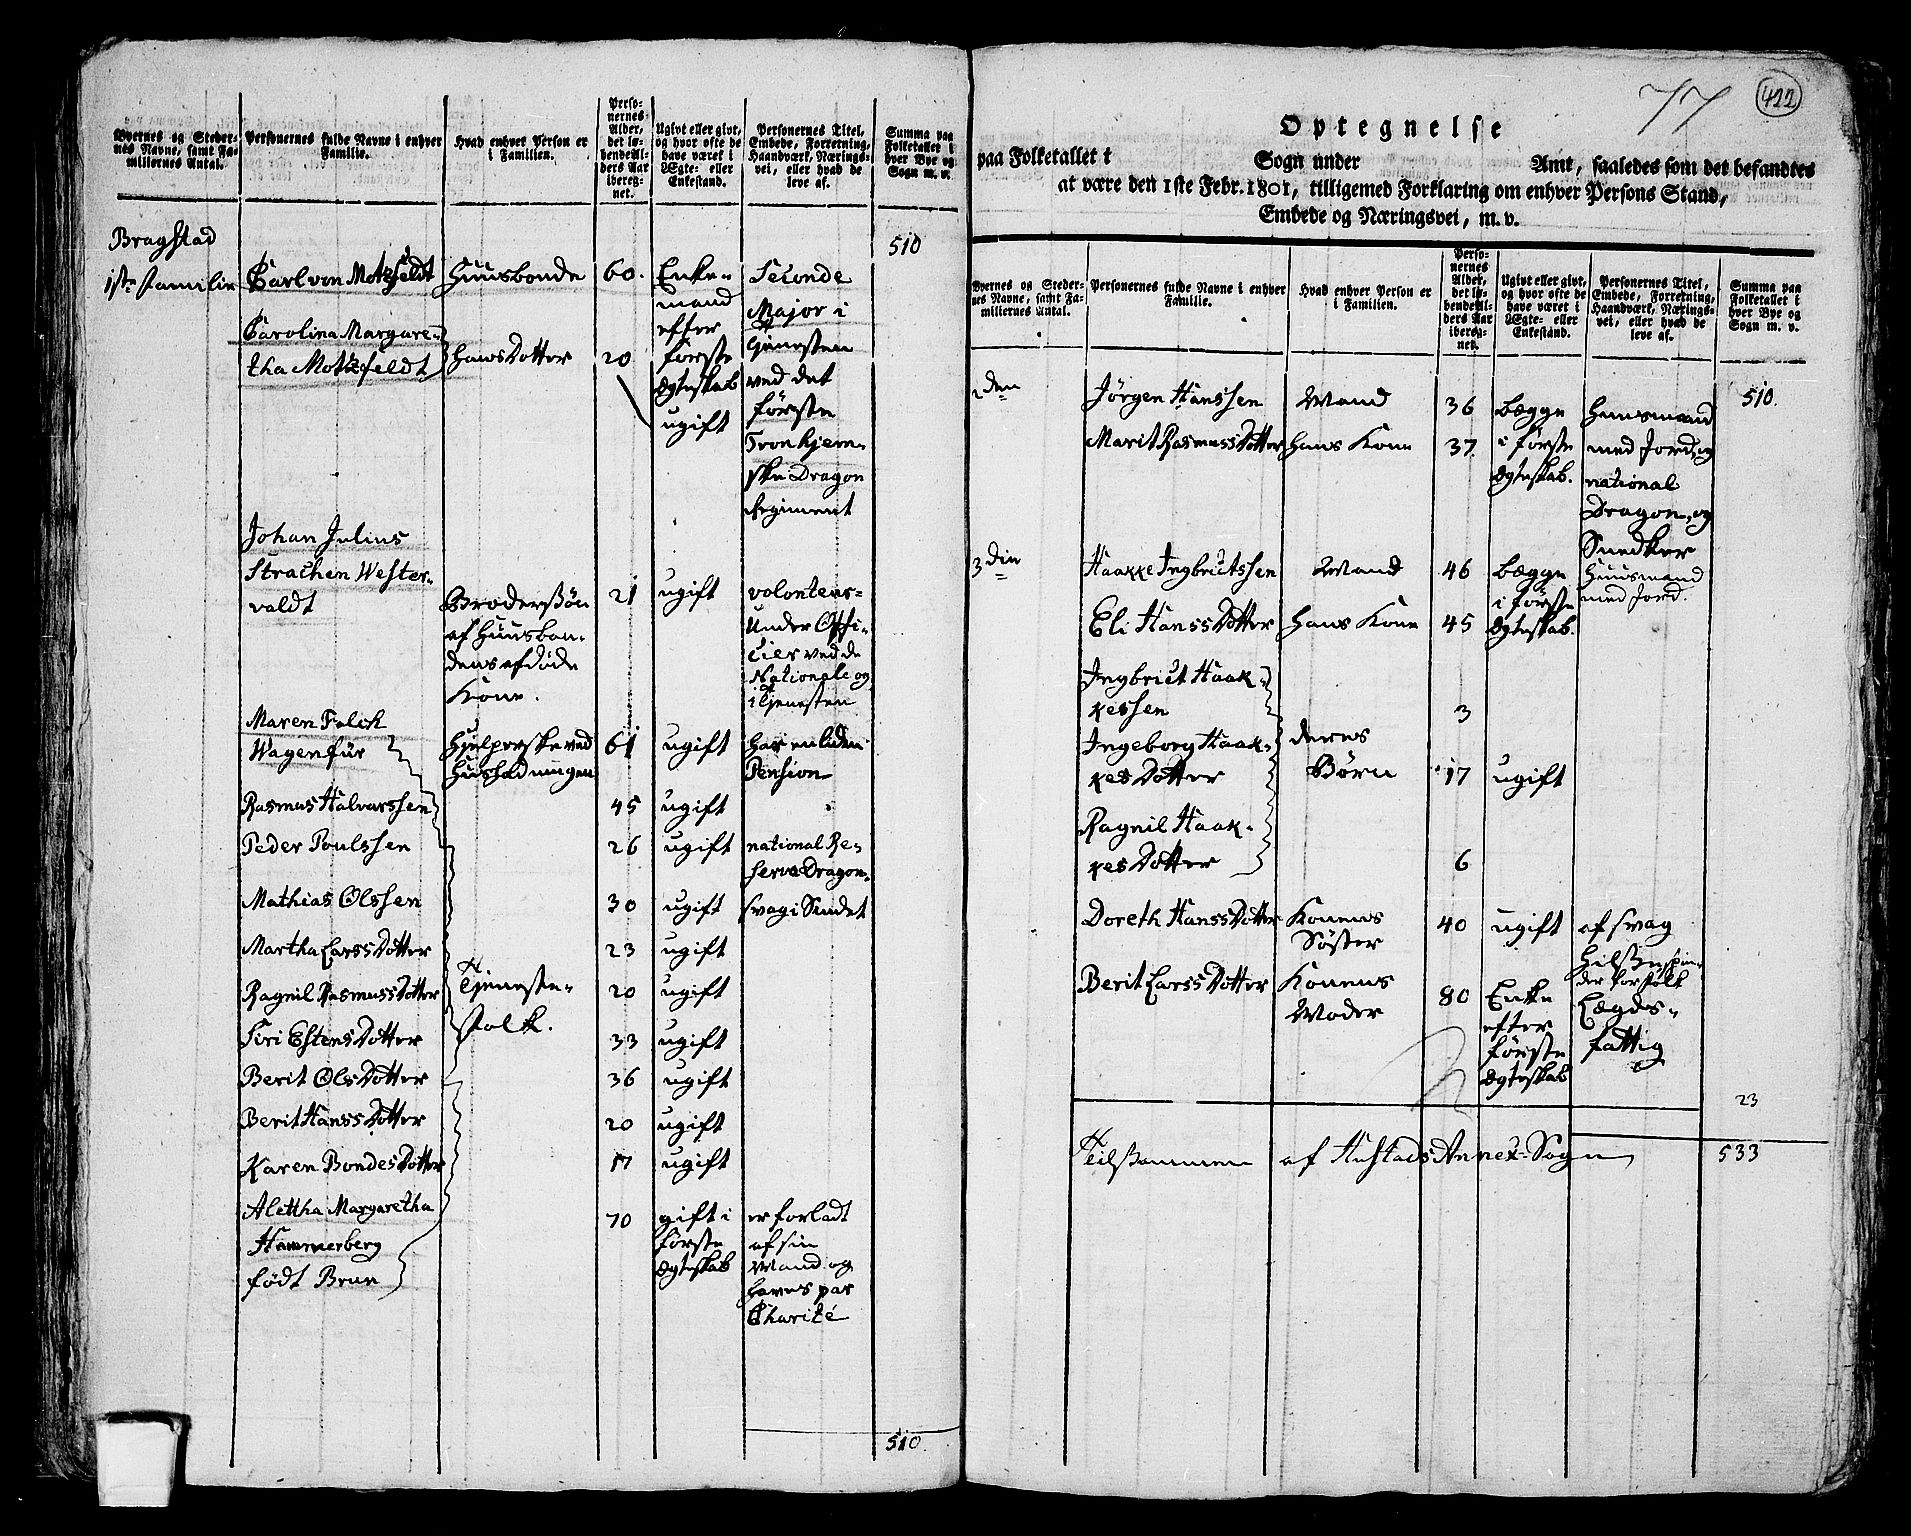 Byernes og Steder-
nes Navne, samt Fa-
miliernes Antal.
Personernes fulde Navne i enhver
Familie.
Hvad enhver Person er
i Familien.
Perso-
nernes
Alder,
det lø-
bende Al-
ders Aar
ibereg-
net.
Ugivt eller givt,
og hvor ofte de
have været i
Ægte- eller
Enkestand.
Personernes Titel,
Embede, Forretning,
Haandværk, Nærings-
vei, eller hvad de
leve af.
Summa paa
Folketallet i
hver Bye og
Sogn m. v.
Bragstad
510
1ste Familie Carl von Motzfeldt Huusbonde 60. Enke-
mand
efter
første
Ægteskab
Seconde
Major i
tjenesten
ved det
første
Tronhjem-
ske Dragon
Regiment
Carolina Margare-
tha Motzfeldt hans Dotter 20 ugift
Johan Julius
Strachen Wester-
valdt
Brodersøn
af Huusbon-
dens afdøde
Kone.
21 ugift
volonteur
Under Offi-
cier ved de
Nationale og
i tjenesten
Maren Falck
Wagenfür
Hjelperske ved
Huusholdningen
61 ugift
har en liden
Pension
Rasmus Halvarssen 45 ugift
Peder Poulssen 26 ugift national Re-
serve Dragon.
Mathias Olssen 30 ugift svag i Sindet
Martha Larss Dotter 23 ugift
Ragnil Rasmuss Dotter 20 ugift
Tjeneste-
Folk.
Siri Estens Dotter 33 ugift
Berit Ols Dotter 36 ugift
Berit Hanss Dotter 20 ugift
Karen Bondes Dotter 17 ugift
Alettha Margaretha
Hammerberg
født Brun
70 gift i
første
Ægteskab
er forladt
af sin
Mand og
haves par
Charité
510.
77
422
Optegnelse
paa Folketallet i Sogn under Amt, saaledes som det befandtes
at være den 1ste Febr. 1801, tilligemed Forklaring om enhver Persons Stand,
Embede og Næringsvei, m. v.
Byernes og Steder-
nes Navne, samt Fa-
miliernes Antal.
Personernes fulde Navne i enhver
Familie.
Hvad enhver Person er
i Familien.
Perso-
nernes
Alder,
det lø-
bende Al-
ders Aar
ibereg-
net.
Ugivt eller givt,
og hvor ofte de
have været i
Ægte- eller
Enkestand.
Personernes Titel,
Embede, Forretning,
Haandværk, Nærings-
vei, eller hvad de
leve af.
Summa paa
Folketallet i
hver Bye og
Sogn m. v.
510.
2den Jörgen Hanssen Mand 36 begge
Marit Rasmuss Dotter hans Kone 37 i første
Ægteskab.
Huusmand
med Jord, og
national
Dragon, og
Snedker
3die Haakke Ingbrictssen Mand 46 begge
i første
Ægteskab.
Huusmand
med Jord.
Eli Hanss Dotter hans Kone 45
Ingbrict Haak-
kessen 3
Ingeborg Haak-
kes Dotter 17 ugift
deres
Børn
Ragnil Haak-
kes Dotter 6
Doreth Hanss Dotter Konens
Søster
40 ugift af svag
Helsse, spin-
der for Folk
Berit Larss Dotter Konens
Moder
80 Enke
efter
første
Ægteskab
Lægds-
fattig
23
Tilsammen af Hustads Annex-Sogn 533